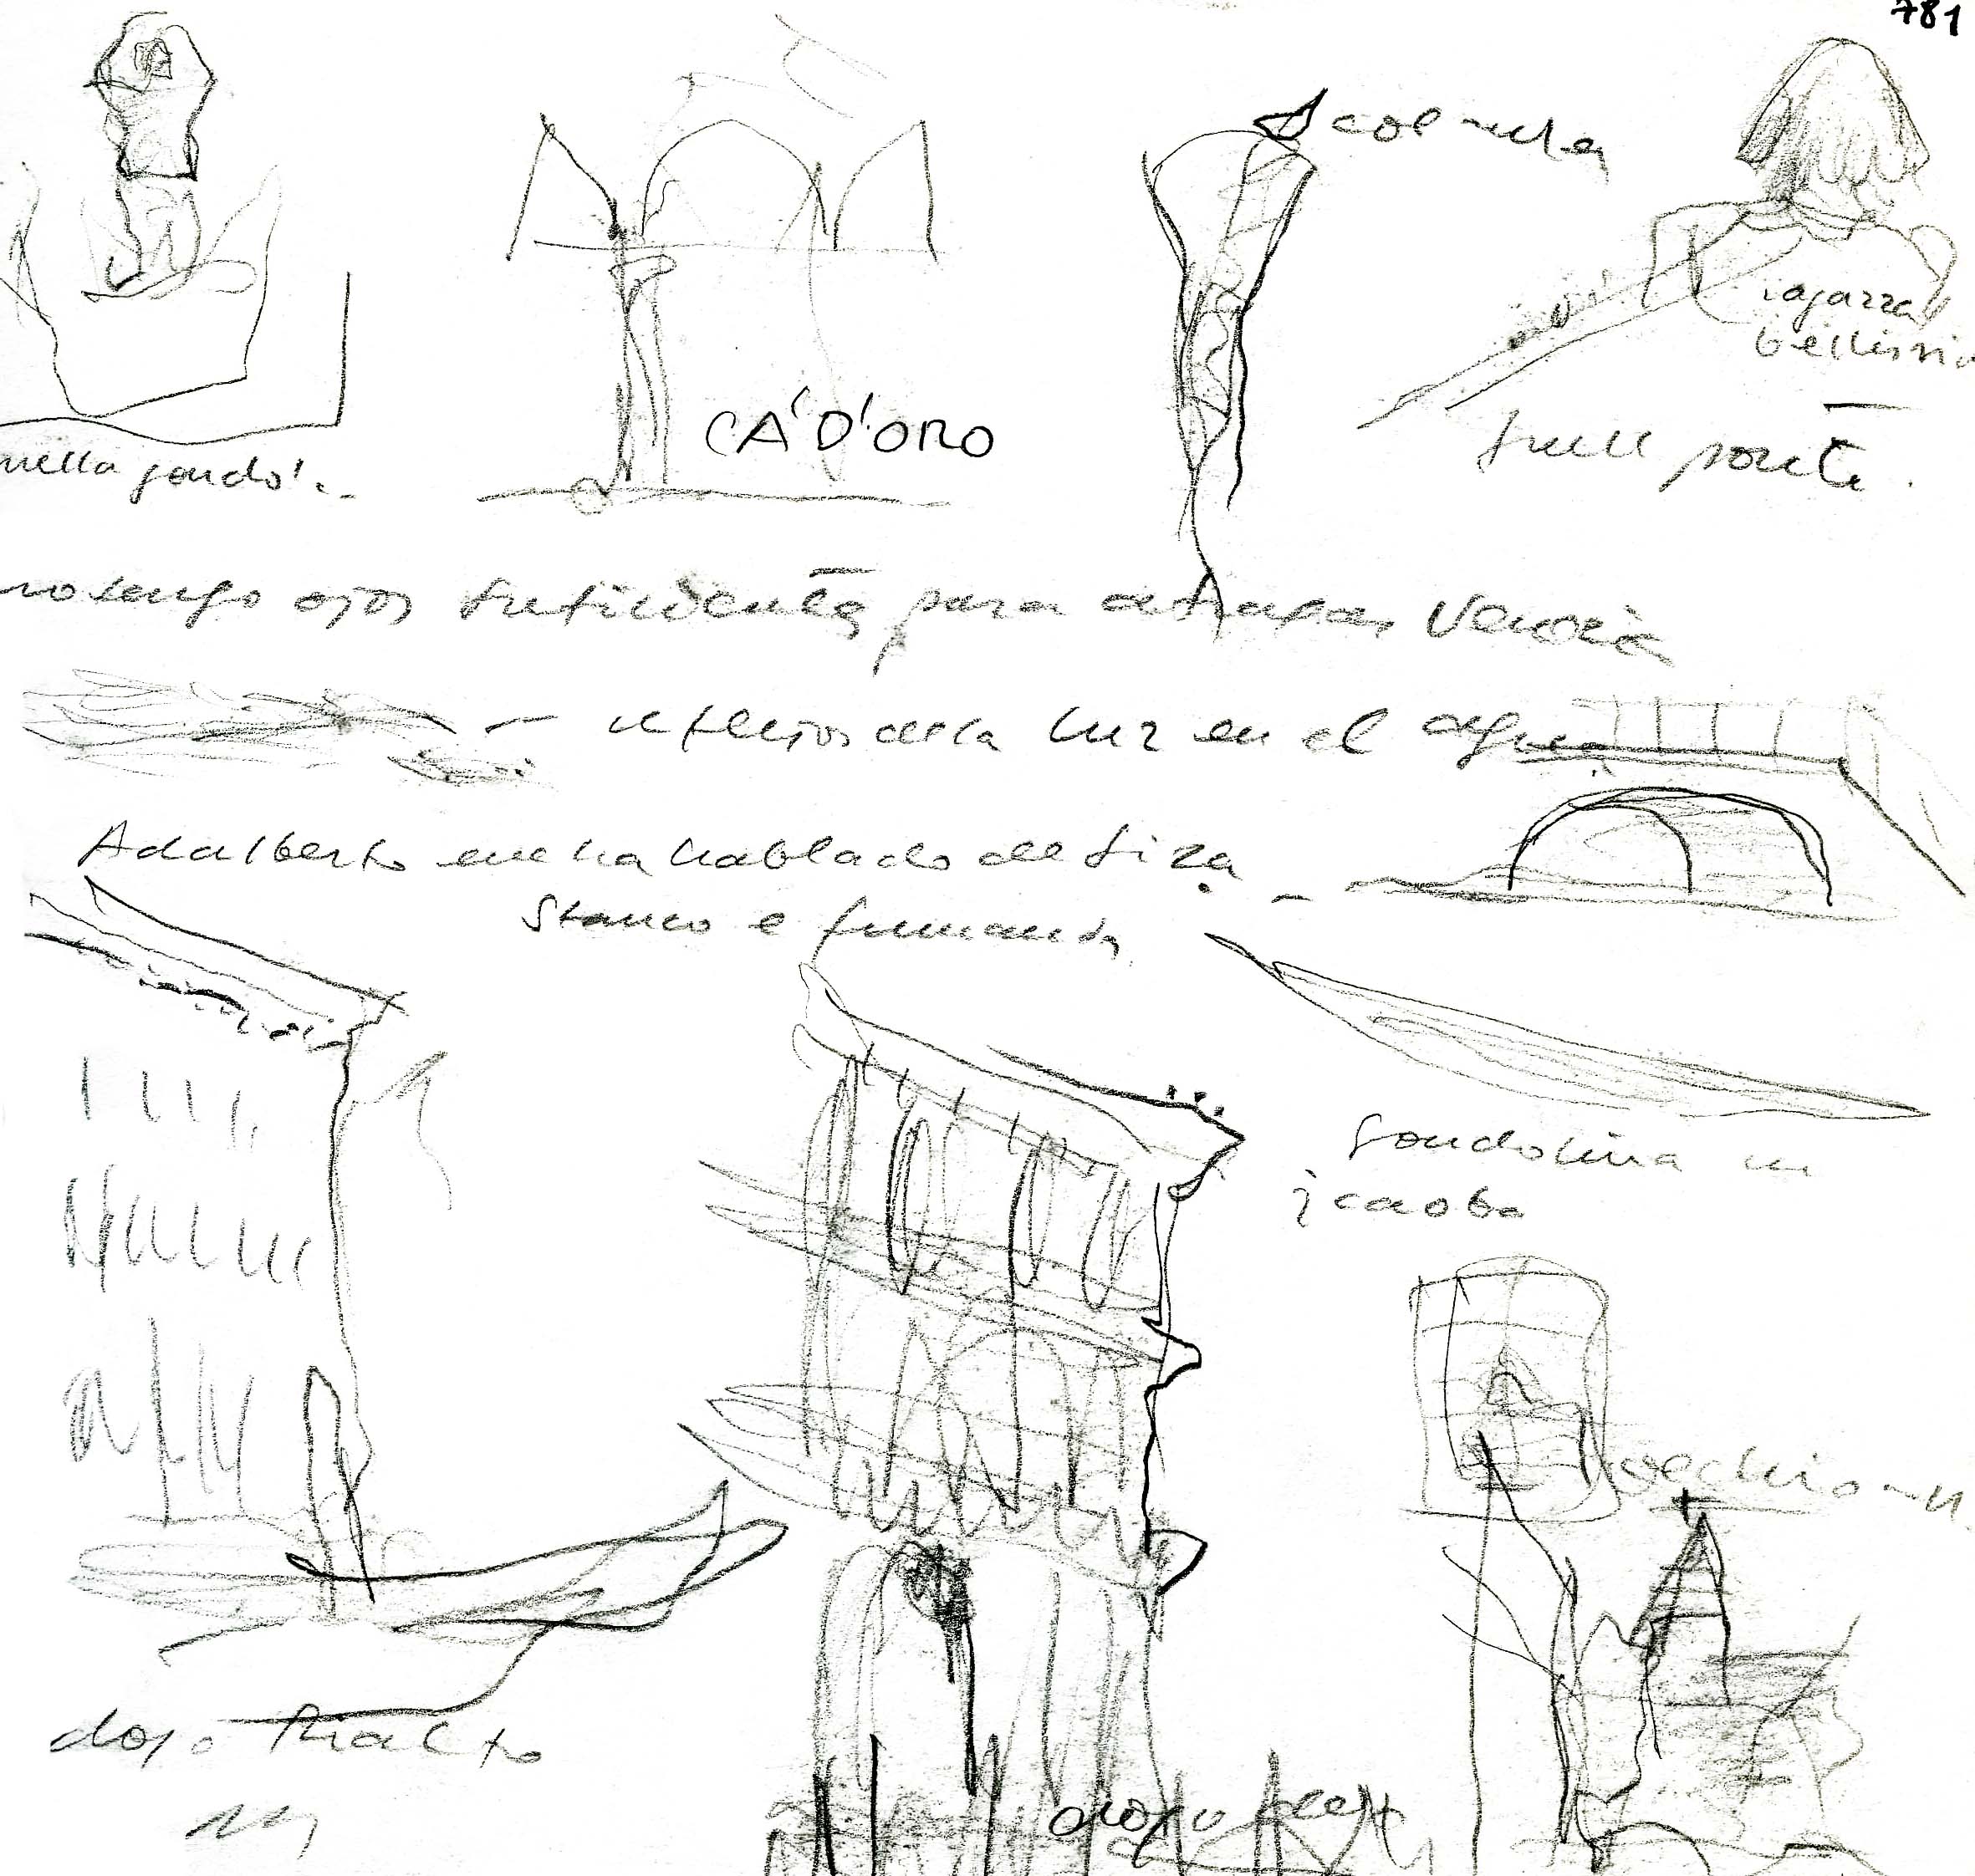 781
colmena
ragazza
nella gondola
CA'D'ORO
sull ponte.
no tengo ojos suficientes para atrapar Venezia
reflejos de la luz en el agua
Adalberto me ha hablado de Siza
Stanco e fumando
Gondolina in
caoba
dopo Rialto
dopo